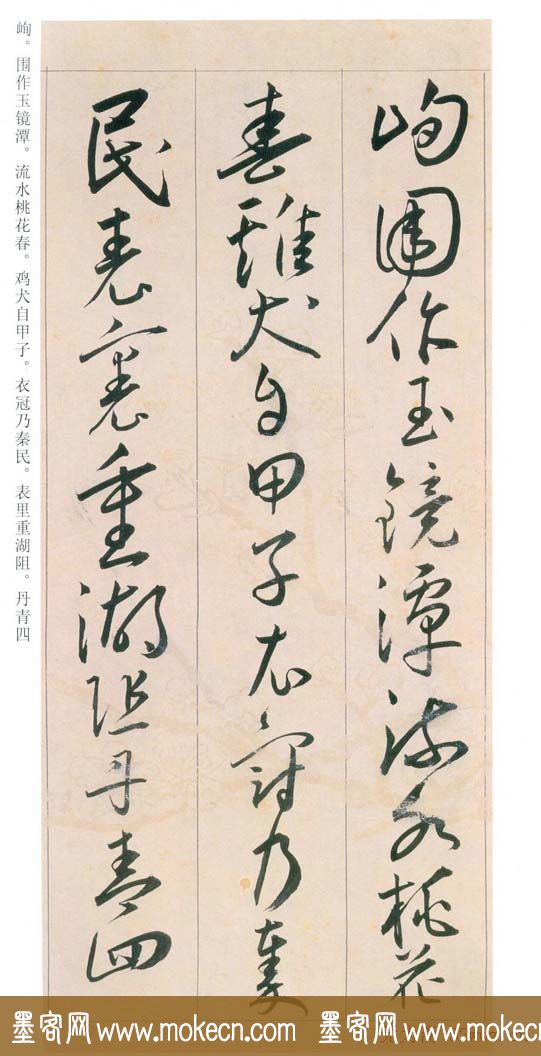 峋围作玉镜潭流水桃花
春鸡犬自甲子衣冠乃秦
民表裏重湖阻丹青四
峋。围作玉镜潭。流水桃花春。鸡犬自甲子。衣冠乃秦民。表里重湖阻。丹青四
墨客网 www.mokecn.com 墨客网 www.mokecn.com